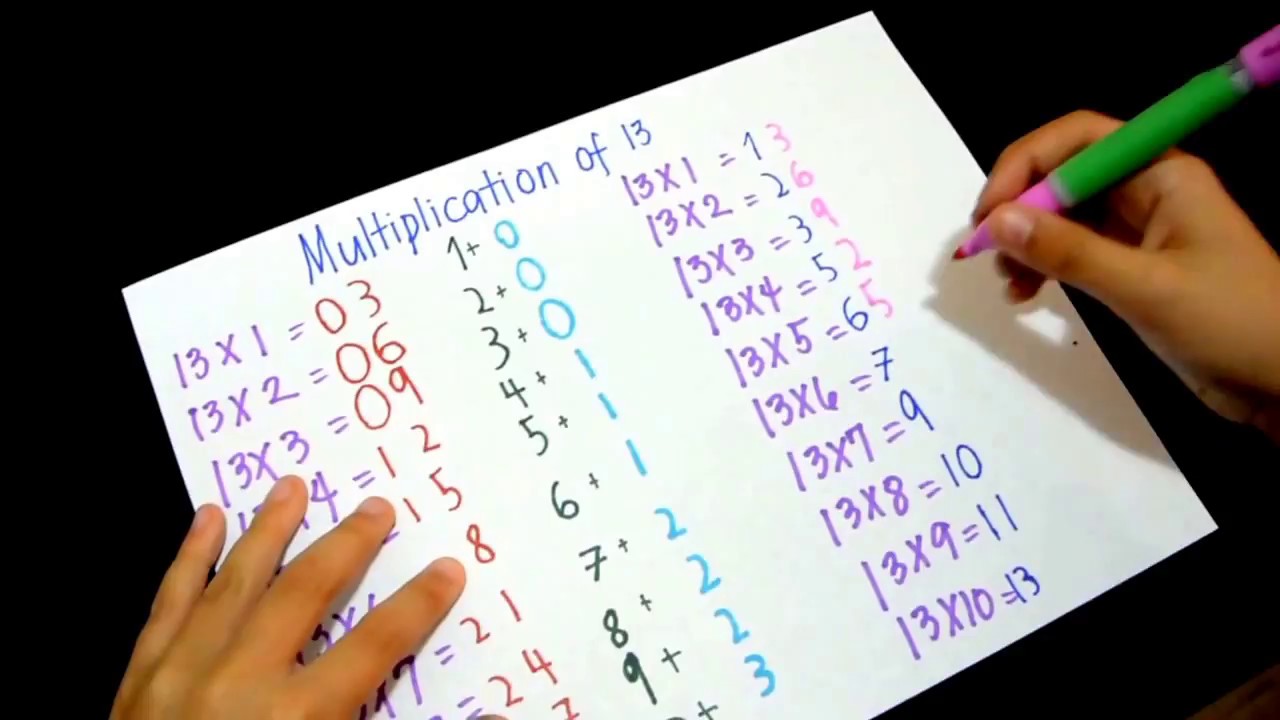 Multiplication of 13
13 X 1 = 03
13 X 2 = 06
13 X 3 = 09
4 = 12
15
8
7 = 21
= 24
7
1+ 0
2+ 0
3+ 0
4+ 1
5+ 1
6+ 1
7+ 2
8+ 2
9+ 2
+ 3
13X1 = 13
13X2 = 26
13X3 = 39
13X4 = 52
13X5 = 65
13X6 = 7
13X7 = 9
13X8 = 10
13X9 = 11
13X10 = 13